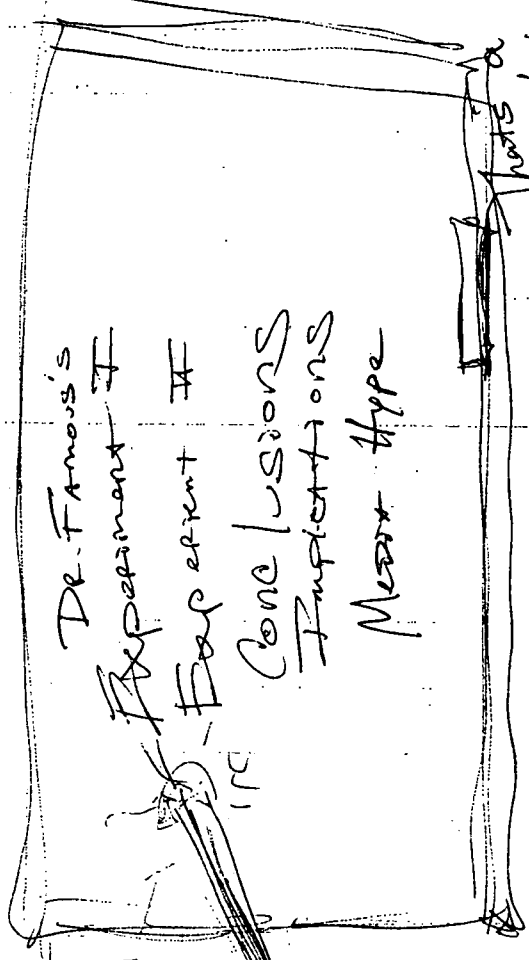 Dr. Famous's
Experiment I
Experiment II
Conclusions
Implications
Media Hype
That's a